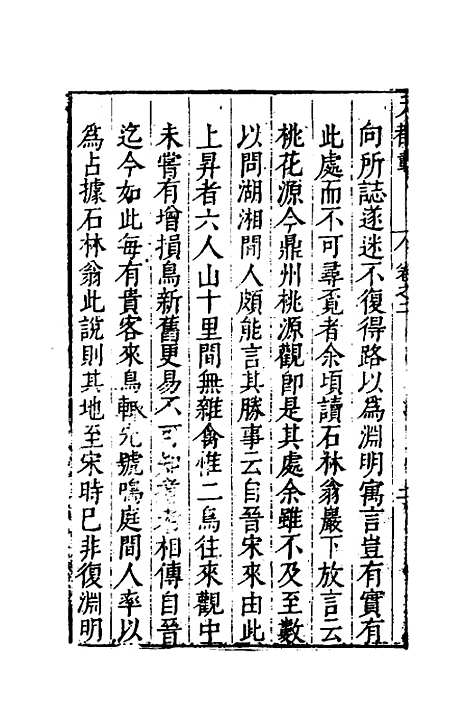 向所誌遂迷不復得路以爲淵明寓言豈有實有
此處而不可尋覓者余頃讀石林翁巖下放言云
桃花源今鼎州桃源觀卽是其處余雖不及至數
以問湖湘間人頗能言其勝事云自晉宋來由此
上昇者六人山十里間無雜禽惟二鳥往來觀中
未嘗有增損鳥新舊更易不可知耆老相傳自晉
迄今如此每有貴客來鳥輒先號鳴庭間人率以
爲占據石林翁此說則其地至宋時已非復淵明
卷之